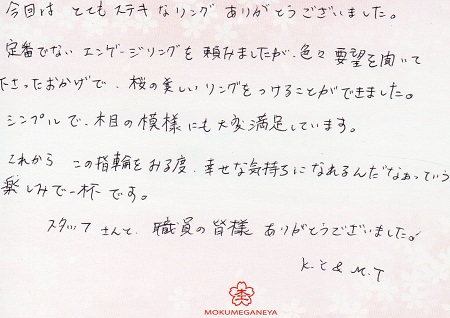 今回は とてもステキなリング ありがとうございました。
定番でない エンゲージリングを頼みましたが、色々要望を聞いて
下さったおかげで、桜の美しいリングをつけることができました。
シンプルで、木目の模様にも大変満足しています。
これから この指輪をみる度、幸せな気持ちになれるんだなぁっていう
楽しみで一杯です。
スタッフさんと、職員の皆様 ありがとうございました。
K.Y & M.T
MOKUMEGANEYA